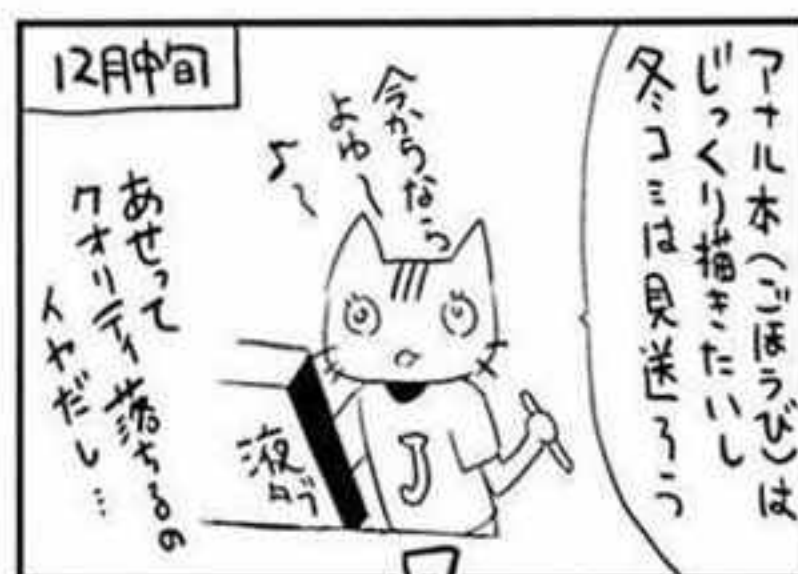 アナル本(ごほうび)は
じっくり描きたいし
冬コミは見送ろう
今からなら
よゆ〜
♪〜
12月中旬
あせって
クオリティ落ちるの
イヤだし…
液タブ
J